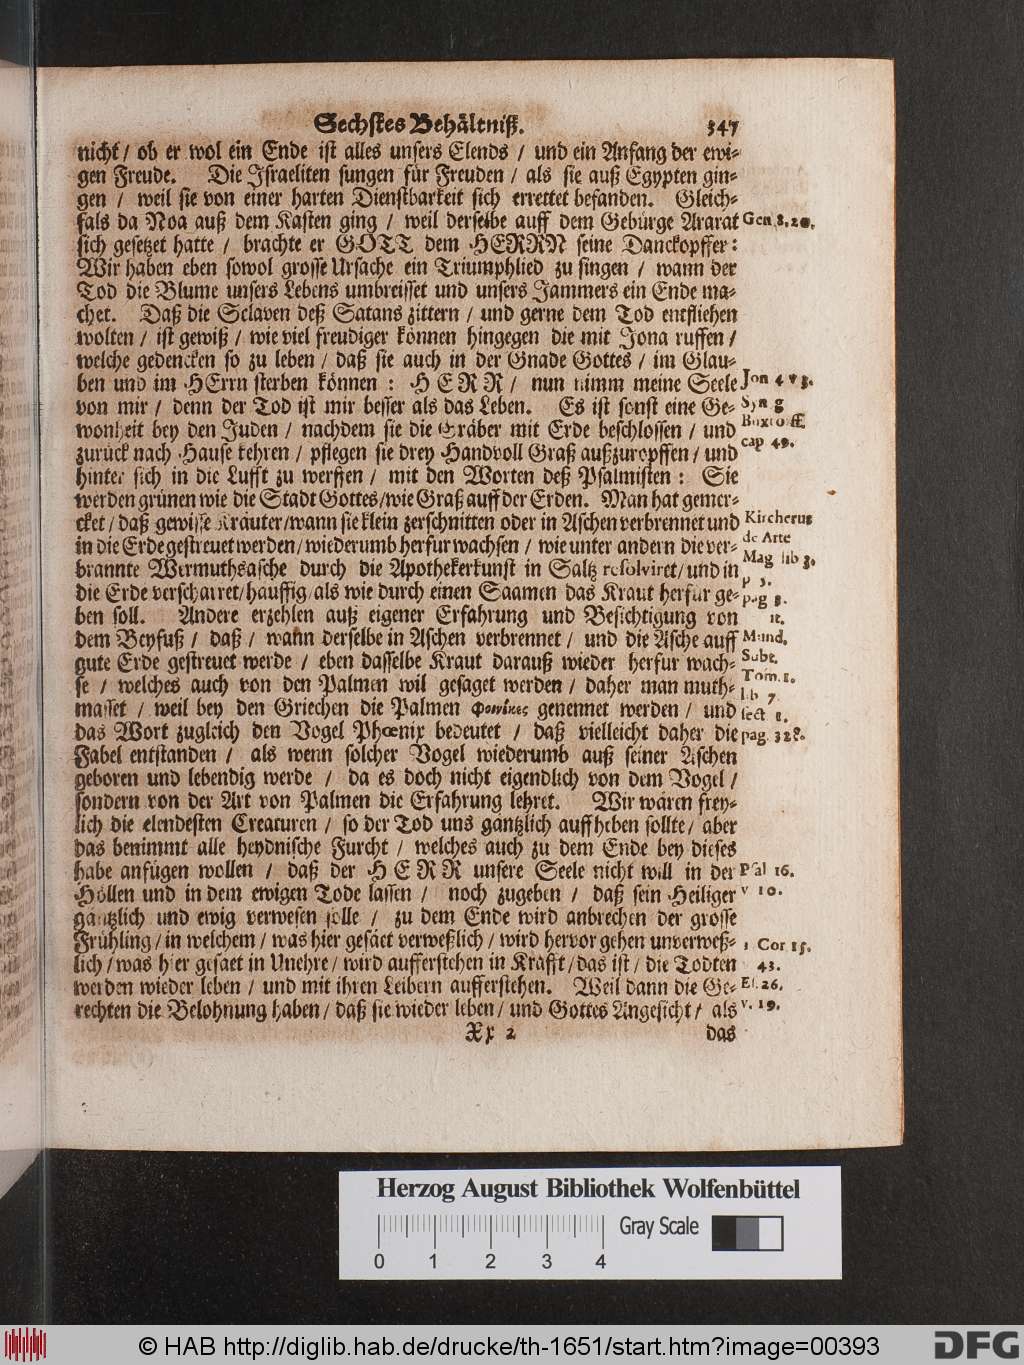 Sechstes Behältniß. 347
nicht / ob er wol ein Ende ist alles unsers Elends / und ein Anfang der ewi-
gen Freude. Die Israeliten sungen für Freuden / als sie auß Egypten gin-
gen / weil sie von einer harten Dienstbarkeit sich errettet befanden. Gleich-
fals da Noa auß dem Kasten ging / weil derselbe auff dem Gebürge Ararat
Gen 8. 20.
sich gesetzet hatte / brachte er GOTT dem HERRN seine Danckopffer:
Wir haben eben sowol grosse Ursache ein Triumphlied zu singen / wann der
Tod die Blume unsers Lebens umbreisset und unsers Jammers ein Ende ma-
chet. Daß die Sclaven deß Satans zittern / und gerne dem Tod entfliehen
wolten / ist gewiß / wie viel freudiger können hingegen die mit Jona ruffen /
welche gedencken so zu leben / daß sie auch in der Gnade Gottes / im Glau-
ben und im HErrn sterben können: HERR / nun nimm meine Seele
Jon 4 v 3.
von mir / denn der Tod ist mir besser als das Leben. Es ist sonst eine Ge-
Syn g
wonheit bey den Juden / nachdem sie die Gräber mit Erde beschlossen / und
Buxtorff
zurück nach Hause kehren / pflegen sie drey Handvoll Graß außzuropffen / und
cap 49.
hinter sich in die Lufft zu werffen / mit den Worten deß Psalmisten: Sie
werden grünen wie die Stadt Gottes / wie Graß auff der Erden. Man hat gemer-
cket / daß gewisse Kräuter / wann sie klein zerschnitten oder in Aschen verbrennet und
Kircherus
in die Erde gestreuet werden / wiederumb herfür wachsen / wie unter andern die ver-
de Arte
brannte Wermuthsasche durch die Apothekerkunst in Saltz resolviret / und in
Mag lib 3.
die Erde verscharret / häuffig / als wie durch einen Saamen das Kraut herfür ge-
p 3.
pag 8.
ben soll. Andere erzehlen auß eigener Erfahrung und Besichtigung von
it.
dem Beyfuß / daß / wann derselbe in Aschen verbrennet / und die Asche auff
Mund.
gute Erde gestreuet werde / eben dasselbe Kraut darauß wieder herfür wach-
Subt.
se / welches auch von den Palmen wil gesaget werden / daher man muth-
Tom. 1.
masset / weil bey den Griechen die Palmen φοινίκες genennet werden / und
lib 7.
sect 1.
das Wort zugleich den Vogel Phœnix bedeutet / daß vielleicht daher die
pag. 328.
Fabel entstanden / als wenn solcher Vogel wiederumb auß seiner Aschen
geboren und lebendig werde / da es doch nicht eigendlich von dem Vogel /
sondern von der Art von Palmen die Erfahrung lehret. Wir wären frey-
lich die elendesten Creaturen / so der Tod uns gäntzlich auffheben sollte / aber
das benimmt alle heydnische Furcht / welches auch zu dem Ende bey dieses
habe anfügen wollen / daß der HERR unsere Seele nicht will in der
Psal 16.
Höllen und in dem ewigen Tode lassen / noch zugeben / daß sein Heiliger
v 10.
gäntzlich und ewig verwesen solle / zu dem Ende wird anbrechen der grosse
Frühling / in welchem / was hier gesäet verweßlich / wird hervor gehen unverweß-
1 Cor 15.
lich / was hier gesäet in Unehre / wird aufferstehen in Krafft / das ist / die Todten
43.
werden wieder leben / und mit ihren Leibern aufferstehen. Weil dann die Ge-
Es. 26.
rechten die Belohnung haben / daß sie wieder leben / und Gottes Angesicht / als
v. 19.
Xx 2 das
Herzog August Bibliothek Wolfenbüttel
Gray Scale
0 1 2 3 4
© HAB http://diglib.hab.de/drucke/th-1651/start.htm?image=00393
DFG